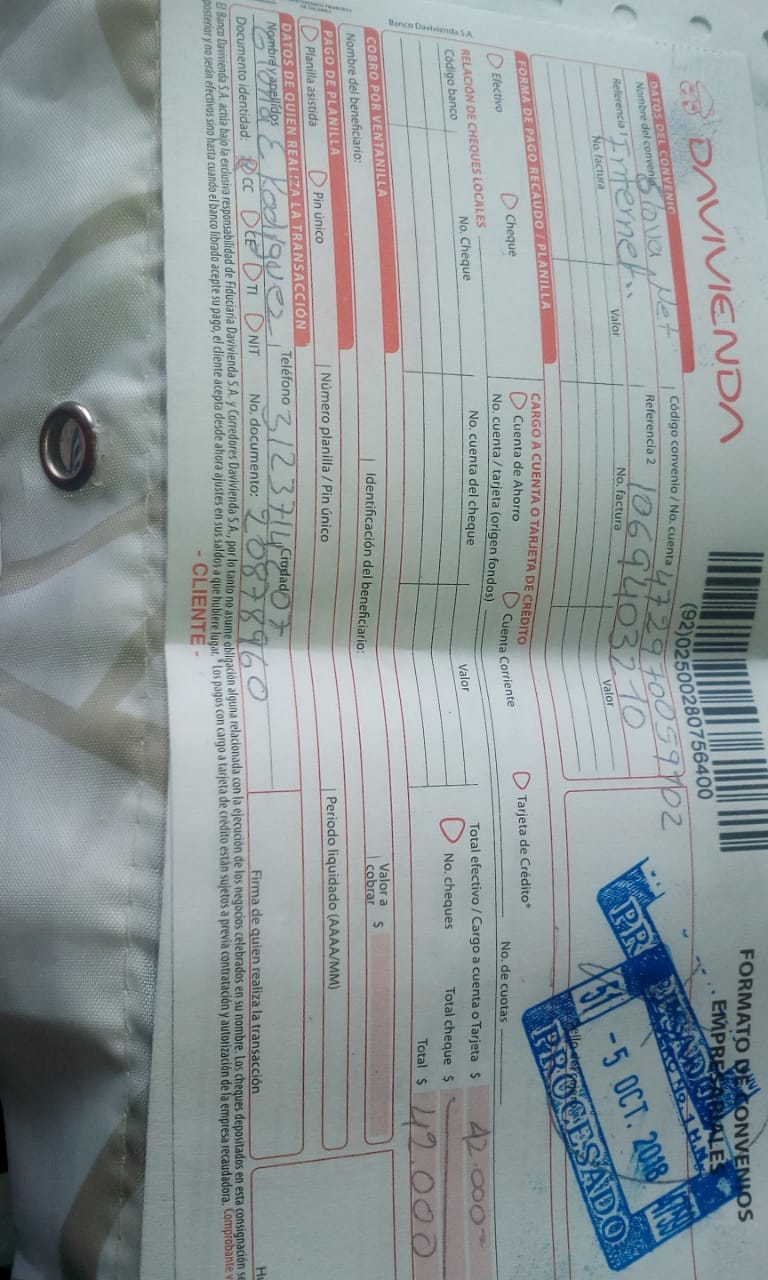 DAVIVIENDA
(92)02500280756400
FORMATO DE CONVENIOS
EMPRESARIALES
DATOS DEL CONVENIO
Nombre del convenio Net
Código convenio / No. cuenta 472970059702
Referencia 1 Internet
Referencia 2 1069403210
No. factura Valor No. factura Valor
PROCESADO
-5 OCT. 2018
PROCESADO
FORMA DE PAGO RECAUDO / PLANILLA
Efectivo Cheque
CARGO A CUENTA O TARJETA DE CRÉDITO
Cuenta de Ahorro Cuenta Corriente Tarjeta de Crédito*
No. cuenta / tarjeta (origen fondos) No. de cuotas
RELACIÓN DE CHEQUES LOCALES
Código banco No. Cheque No. cuenta del cheque Valor
Total efectivo / Cargo a cuenta o Tarjeta $ 42.000
No. cheques Total cheque $
Total $ 42.000
Banco Davivienda S.A.
COBRO POR VENTANILLA
Nombre del beneficiario: Identificación del beneficiario: Valor a cobrar $
PAGO DE PLANILLA
Planilla asistida Pin único Número planilla / Pin único Periodo liquidado (AAAA/MM)
DATOS DE QUIEN REALIZA LA TRANSACCIÓN
Nombre y apellidos Gloria E Rodriguez Teléfono 3123714607 Ciudad
Documento identidad: CC CE TI NIT No. documento: 20878960
Firma de quien realiza la transacción
El Banco Davivienda S.A. actúa bajo la exclusiva responsabilidad de Fiduciaria Davivienda S.A. y Corredores Davivienda S.A., por lo tanto no asume obligación alguna relacionada con la ejecución de los negocios celebrados en su nombre. Los cheques depositados en esta consignación se
posterior y no serán efectivos sino hasta cuando el banco librado acepte su pago, el cliente acepta desde ahora ajustes en sus saldos a que hubiere lugar. *Los pagos con cargo a tarjeta de crédito están sujetos a previa contratación y autorización de la empresa recaudadora. Comprobante
- CLIENTE -